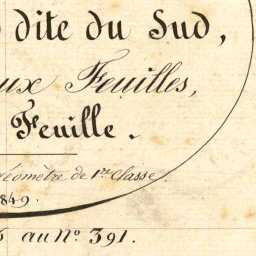 dite du Sud,
ux Feuilles,
Feuille.
éomètre de 1re Classe.
849.
au No 391.